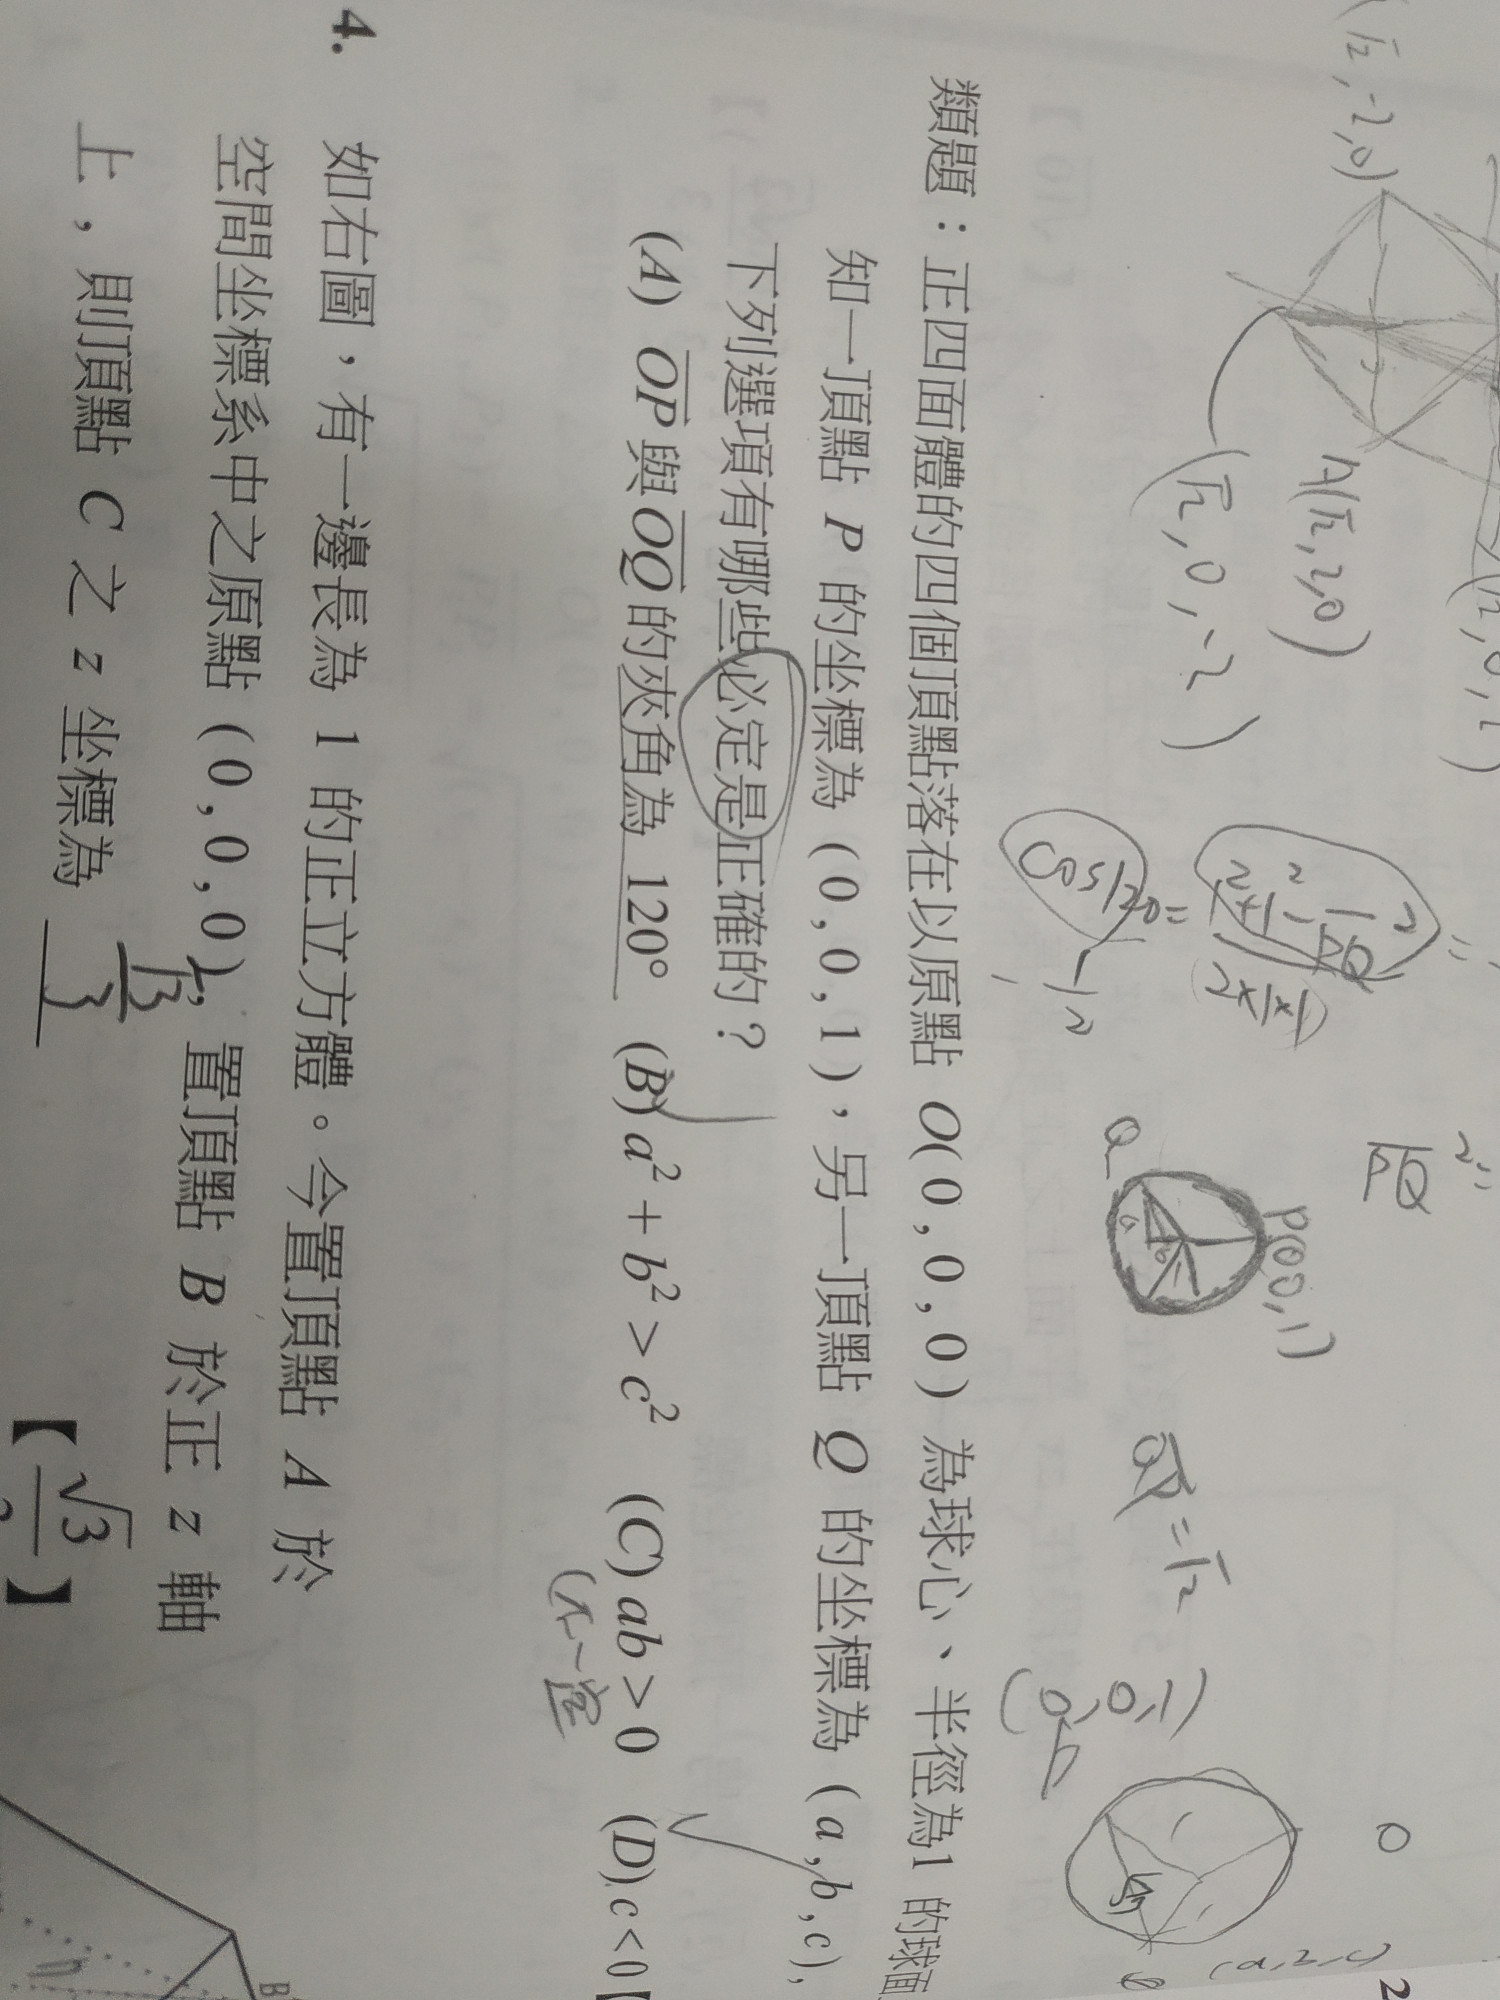 (√2,-2,0)
A(√2,2,0)
(√2,0,-2)
類題：正四面體的四個頂點落在以原點 O(0,0,0) 為球心、半徑為1 的球面
知一頂點 P 的坐標為 (0,0,1)，另一頂點 Q 的坐標為 (a,b,c)，
下列選項有哪些必定是正確的？
(A) \overline{OP}與\overline{OQ}的夾角為 120° (B) a²+b²>c² (C) ab>0 (D) c<0【
(不一定)
4. 如右圖，有一邊長為 1 的正立方體。今置頂點 A 於
空間坐標系中之原點 (0,0,0)，置頂點 B 於正 z 軸
上，則頂點 C 之 z 坐標為 √3/3
【√3/
cos120=
P(0,0,1)
Q
B
2